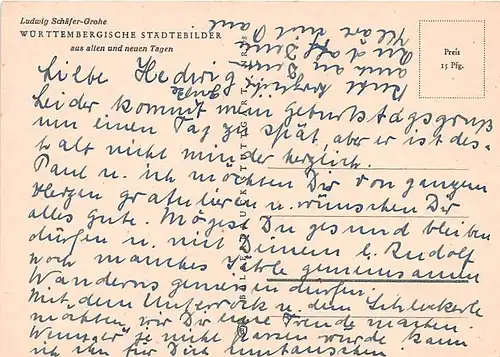 Ludwig Schäfer-Grohe
WÜRTTEMBERGISCHE STÄDTEBILDER
aus alten und neuen Tagen
Preis
15 Pfg.
Liebe Hedwig!
Leider kommt mein Geburtstagsgruß
um einen Tag zu spät, aber er ist des-
halb nicht minder herzlich.
Paul u. ich möchten Dir von ganzem
Herzen gratulieren u. wünschen Dir
alles Gute. Mögest Du gesund bleiben
dürfen u. mit Deinem l. Rudolf
noch manches Jahr gemeinsamen
Wanderns geniessen dürfen.
Mit dem Unterrock u. dem Schleckerle
möchten wir Dir eine Freude machen.
Weniger er nicht passen würde kann
ich ihn für Dich umtauschen.
Recht herzliche Grüße
auch an Deine